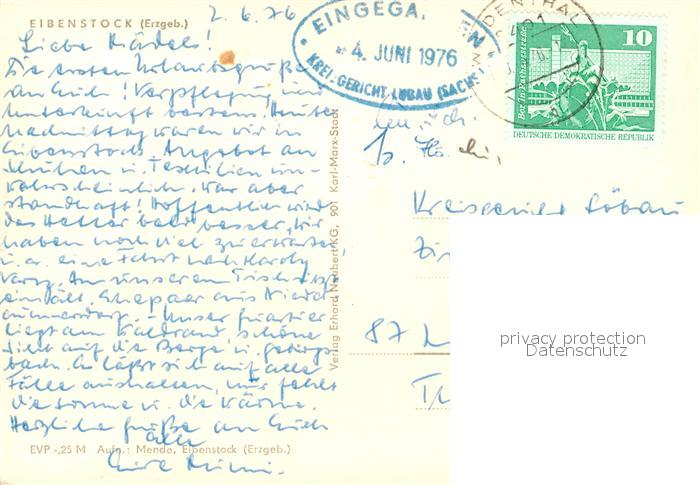 EIBENSTOCK (Erzgeb.)
2.6.76
Liebe Mädels!
Die ersten Urlaubsgrüße
an Euch! Verpflegung und
Unterkunft bestens. Heute
Nachmittag waren wir in
Eibenstock. Angebot an
Schuhen u. Textilien un-
wahrscheinlich. War aber
standhaft! Hoffentlich wird
das Wetter bald besser, wir
haben noch viel zu erwarten
u.a. eine Fahrt nach Karlovy
Vary. An unserem Tisch ist
ein ält. Ehepaar aus
Unser Quartier
liegt am Waldrand, schöne
Sicht auf die Berge u. Gebirgs-
bach. Es läßt sich auf alle
Fälle aushalten, nur fehlt
die Sonne u. die Wärme.
Herzliche Grüße an Euch
alle
Eure
EVP -,25 M Aufn.: Mende, Eibenstock (Erzgeb.)
Verlag Erhard Neubert KG, 901 Karl-Marx-Stadt
EINGEGA EN
4. JUNI 1976
KREISGERICHT LÖBAU (SACHS
DENTHAL
9401
10
Bar In Rathausstraße
DEUTSCHE DEMOKRATISCHE REPUBLIK
Kreisgericht Löbau
87 L
privacy protection
Datenschutz